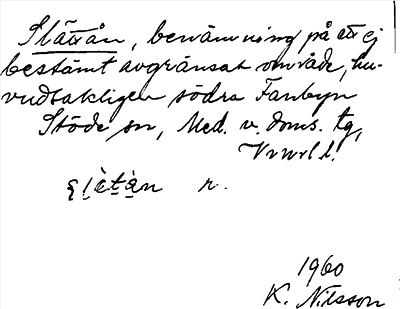 Slättån, benämning på ett ej
bestämt avgränsat område, hu-
vudsakligen södra Fanbyn
Stöde sn, Med. v. doms. tg,
l.
r.
1960
K. Nilsson